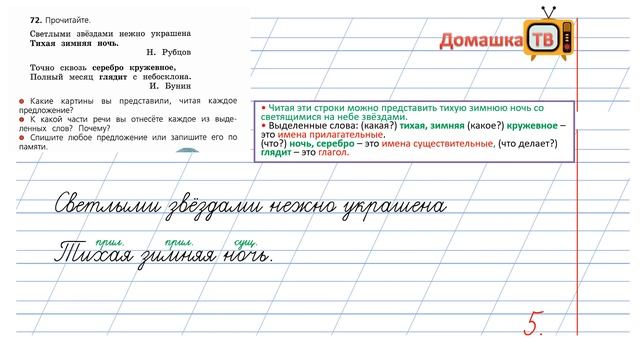 72. Прочитайте.
Светлыми звёздами нежно украшена
Тихая зимняя ночь.
Н. Рубцов
Точно сквозь серебро кружевное,
Полный месяц глядит с небосклона.
И. Бунин
● Какие картины вы представили, читая каждое
предложение?
● К какой части речи вы отнесёте каждое из выде-
ленных слов? Почему?
● Спишите любое предложение или запишите его по
памяти.
Домашка ТВ
• Читая эти строки можно представить тихую зимнюю ночь со
светящимися на небе звёздами.
• Выделенные слова: (какая?) тихая, зимняя (какое?) кружевное –
это имена прилагательные.
(что?) ночь, серебро – это имена существительные, (что делает?)
глядит – это глагол.
Светлыми звёздами нежно украшена
прил. прил. сущ.
Тихая зимняя ночь.
5.